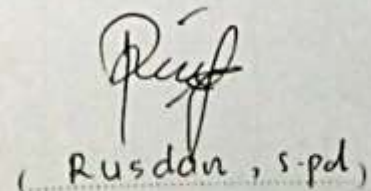 ( Rusdan, S.pd )